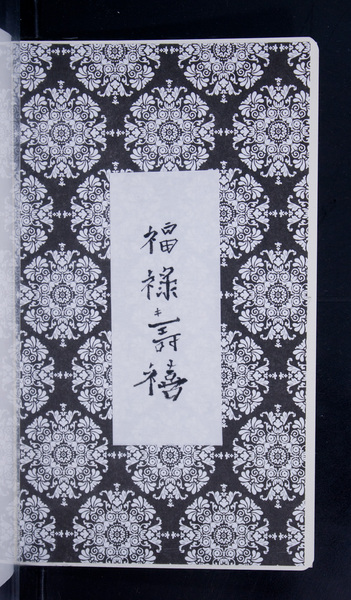 福祿壽禧